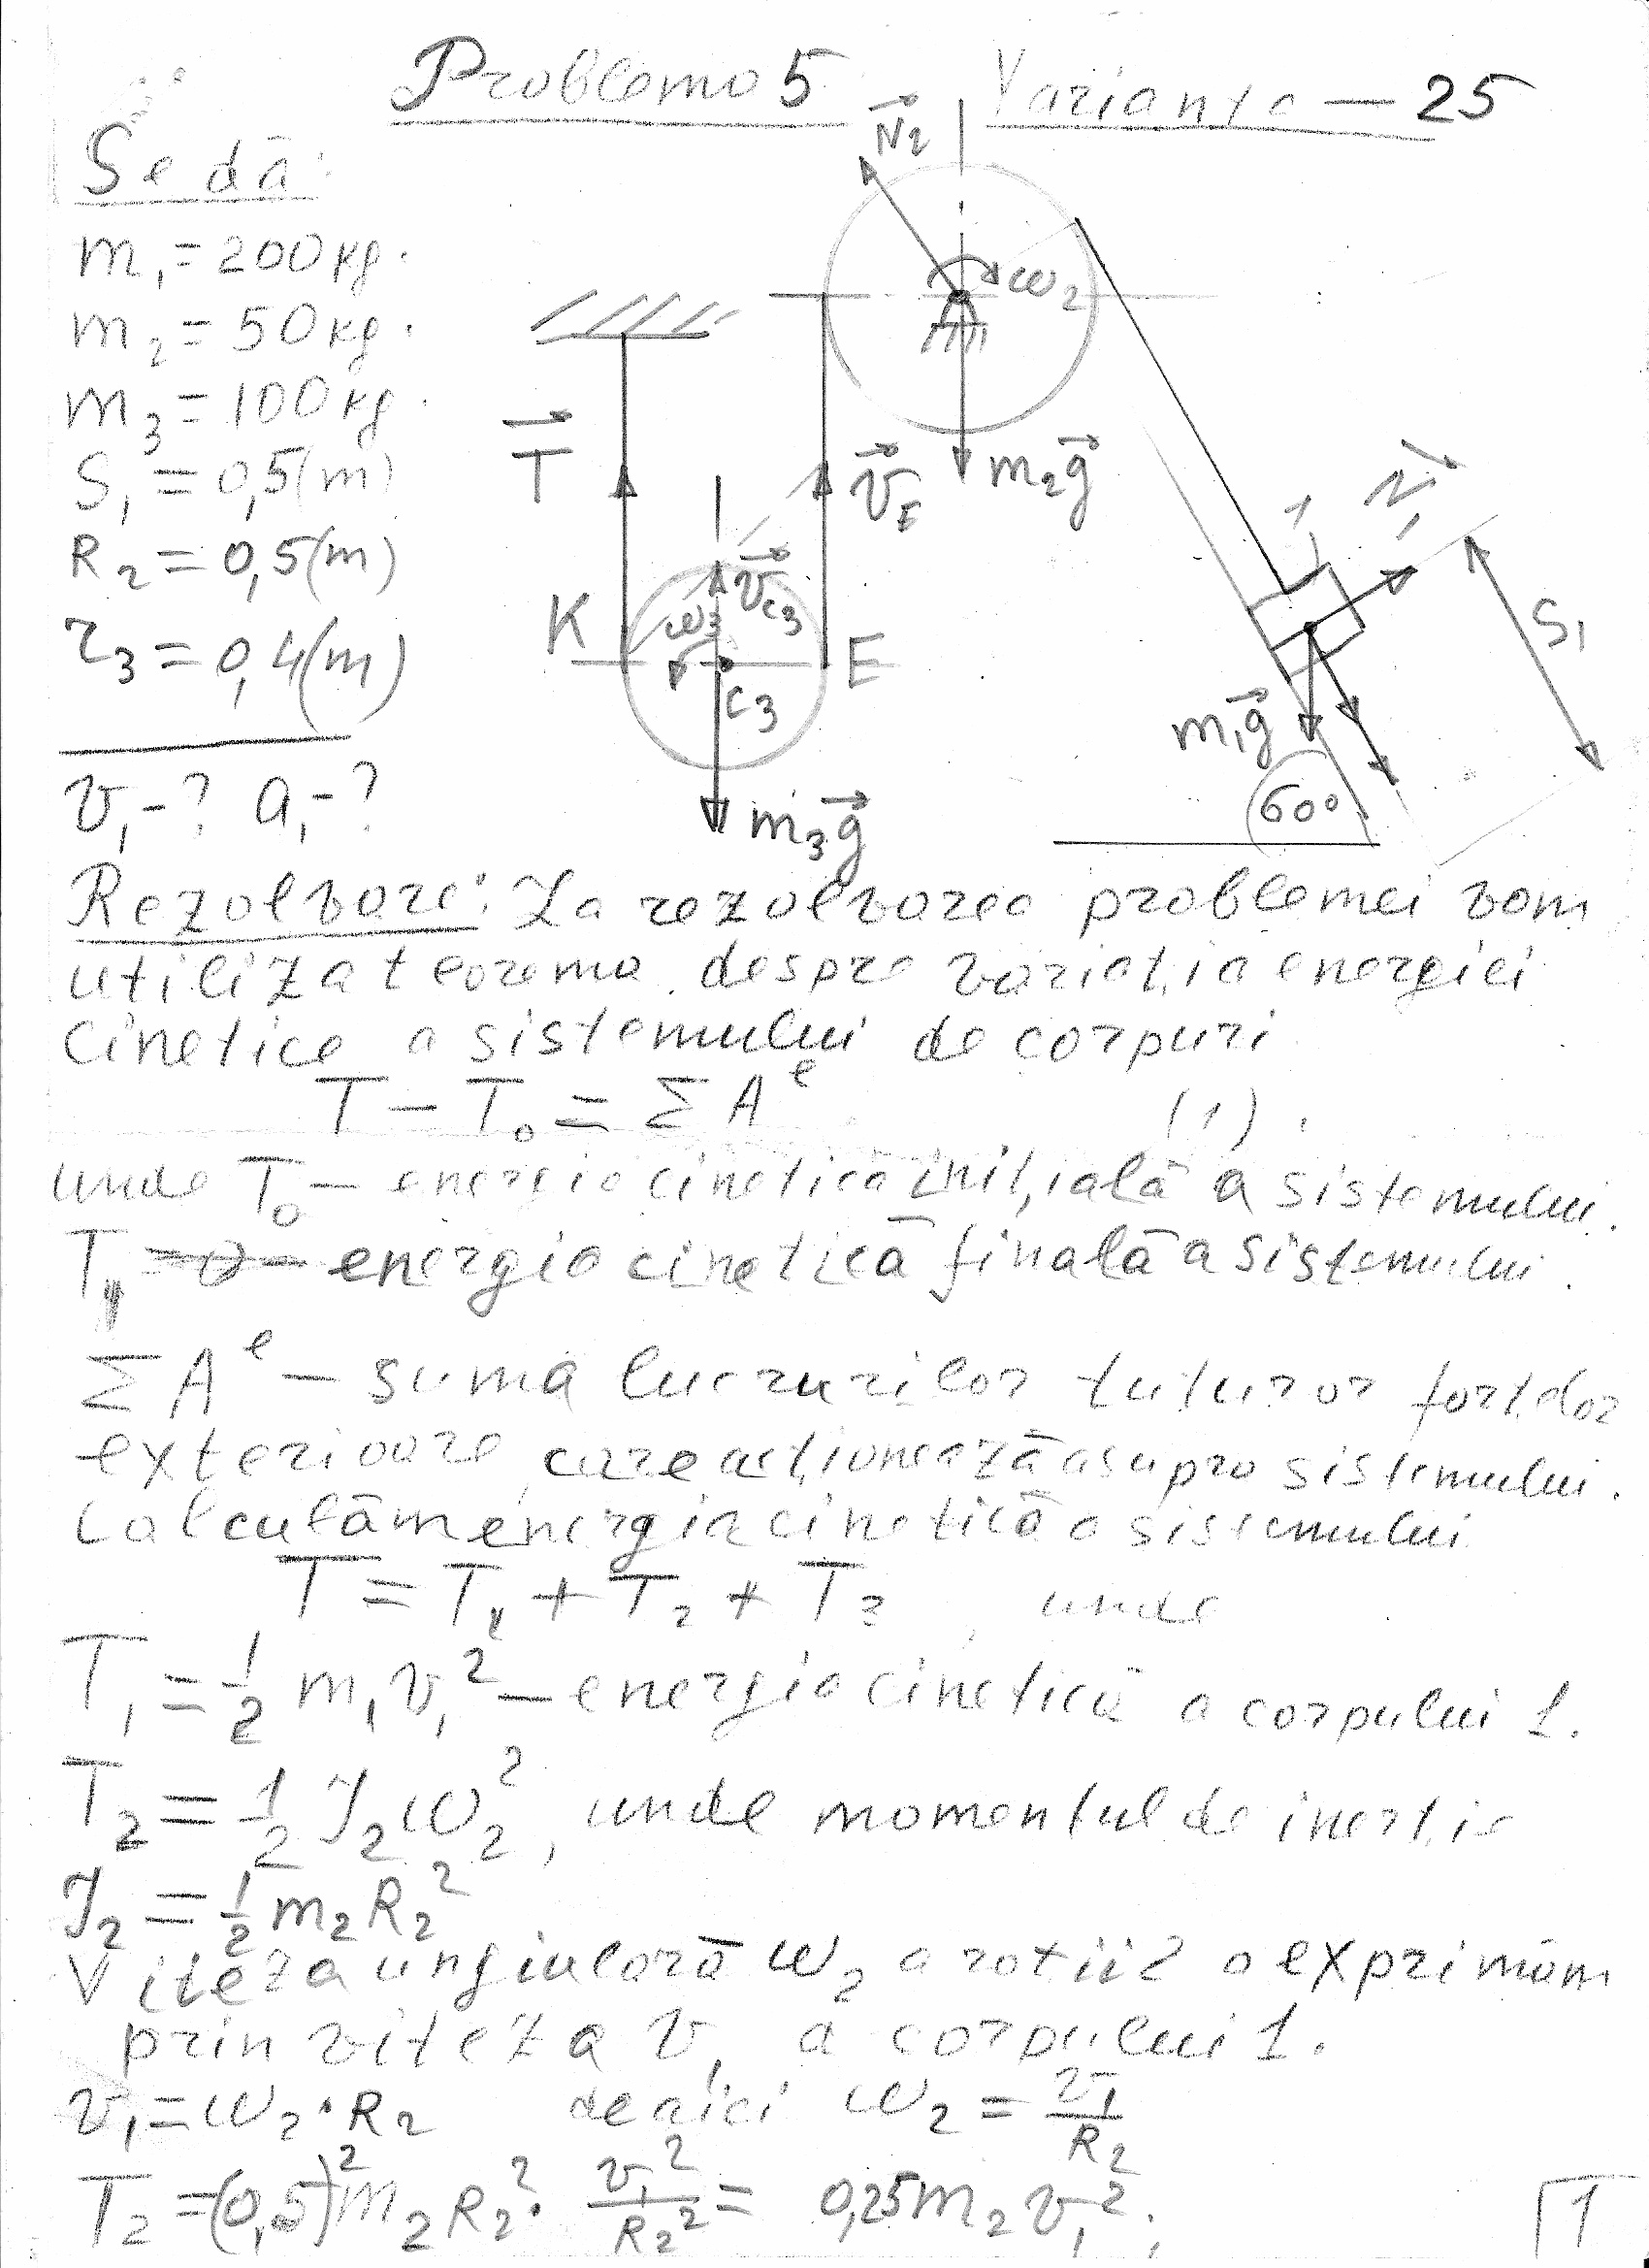 Problema 5 Varianta — 25
Se dă:
m₁ = 200 kg.
m₂ = 50 kg.
m₃ = 100 kg.
S₁ = 0,5 (m)
R₂ = 0,5 (m)
r₃ = 0,4 (m)
v₁ - ? a₁ - ?
N₂
ω₂
T
m₂g
v_E
1
N₁
S₁
K
ω₃
v_C₃
E
C₃
m₁g
60°
m₃g
Rezolvare: La rezolvarea problemei vom
utiliza teorema despre variația energiei
cinetice a sistemului de corpuri
T — T₀ = Σ Aᵉ (1).
unde T₀ — energia cinetică inițială a sistemului.
T — energia cinetică finală a sistemului.
Σ Aᵉ — suma lucrurilor tuturor forțelor
exterioare care acționează asupra sistemului.
Calculăm energia cinetică a sistemului
T = T₁ + T₂ + T₃, unde
T₁ = 1/2 m₁ v₁² — energia cinetică a corpului 1.
T₂ = 1/2 J₂ ω₂², unde momentul de inerție
J₂ = 1/2 m₂ R₂²
Viteza unghiulară ω₂ a roții 2 o exprimăm
prin viteza v₁ a corpului 1.
v₁ = ω₂ · R₂ de aici ω₂ = v₁/R₂
T₂ = (0,5)² m₂ R₂² · v₁²/R₂² = 0,25 m₂ v₁²;
1